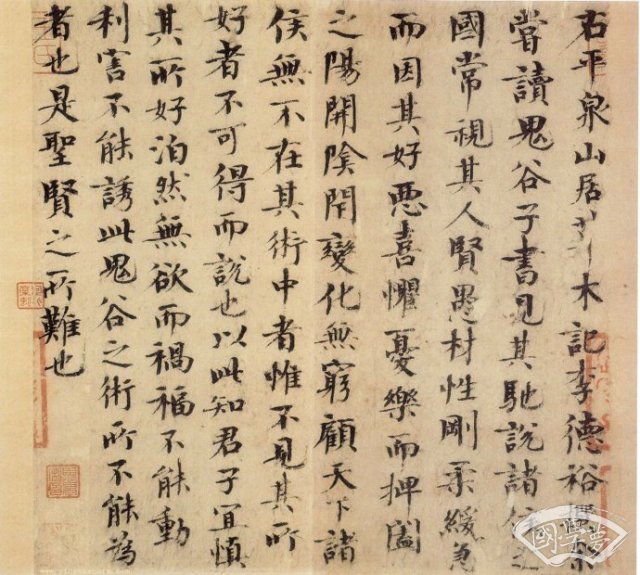 右平泉山居草木記李德裕撰余
嘗讀鬼谷子書見其馳說諸侯之
國常視其人賢愚材性剛柔緩急
而因其好惡喜懼憂樂而捭闔
之陽開陰閉變化無窮顧天下諸
侯無不在其術中者惟不見其所
好者不可得而說也以此知君子宜慎
其所好泊然無欲而禍福不能動
利害不能誘此鬼谷之術所不能為
者也是聖賢之所難也
國學夢